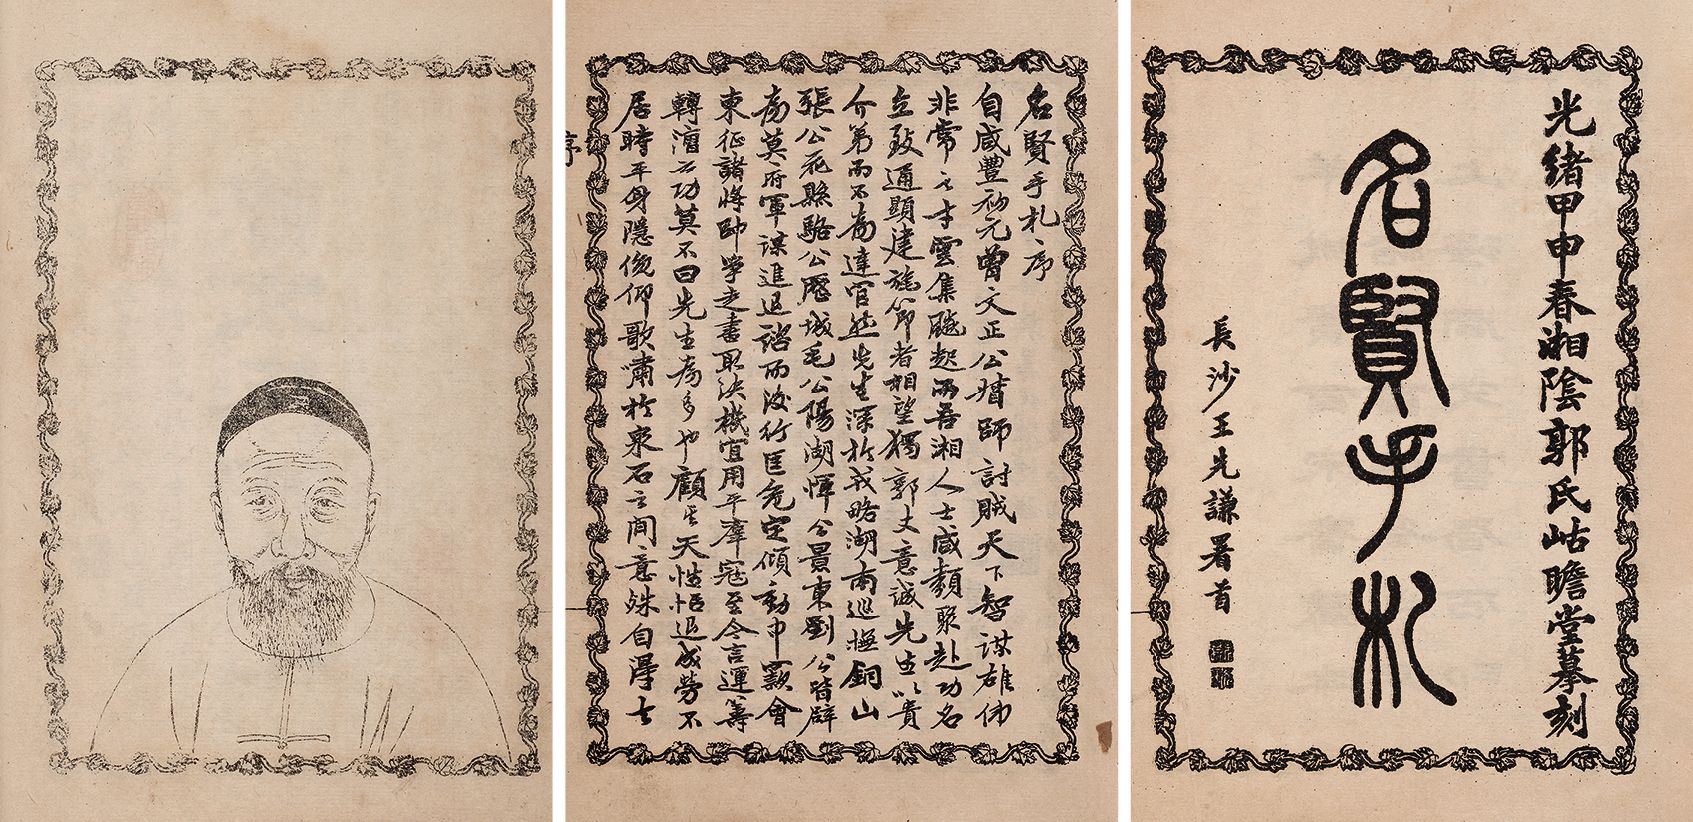 光緒甲申春湘陰郭氏岵瞻堂摹刻
名賢手札
長沙王先謙署首
名賢手札序
自咸豐初元曾文正公師討賊天下智謀雄
非常之才雲集飈起而吾湘人士咸類聚赴功名
立致通顯建旄節者相望獨郭丈意誠先生以貴
介弟而不為達官然先生深於戎略湖南巡撫銅山
張公花縣駱公歷城毛公陽湖惲公景東劉公皆辟
為莫府軍謀進退諮而後行匡危定傾動中窾會
東征諸將帥走書取決機宜用平羣寇至今言運籌
轉漕之功莫不曰先生為多也顧其天性恬退成勞不
居時平身隱俛仰歌嘯於泉石之間意殊自
序